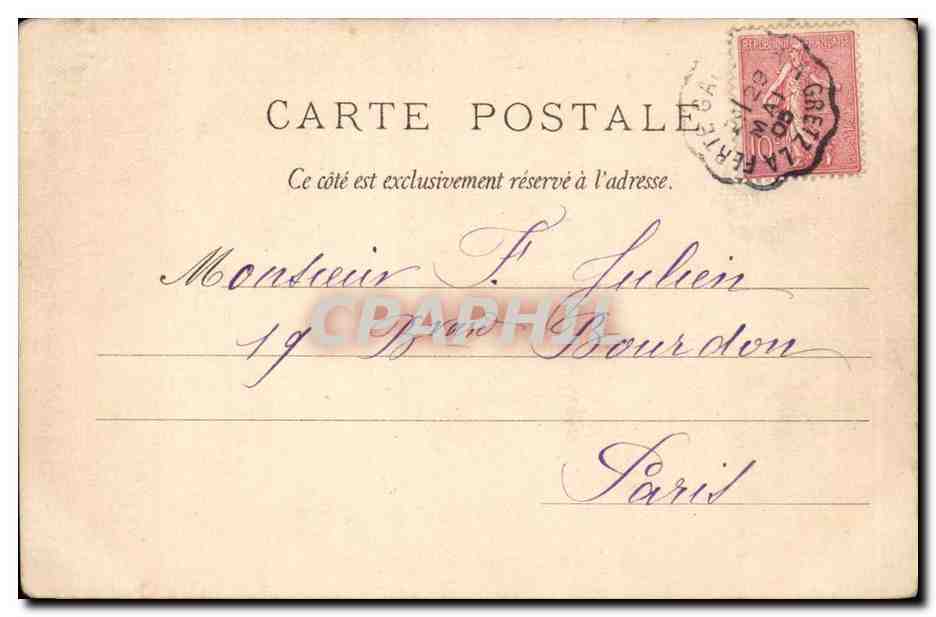 RÉPUBLIQUE FRANÇAISE
10
GRETZ LA FERTE GAU
29
MAI
05
CARTE POSTALE
Ce côté est exclusivement réservé à l'adresse.
Monsieur F. Julien
19 Bard Bourdon
Paris
CPAPHIL